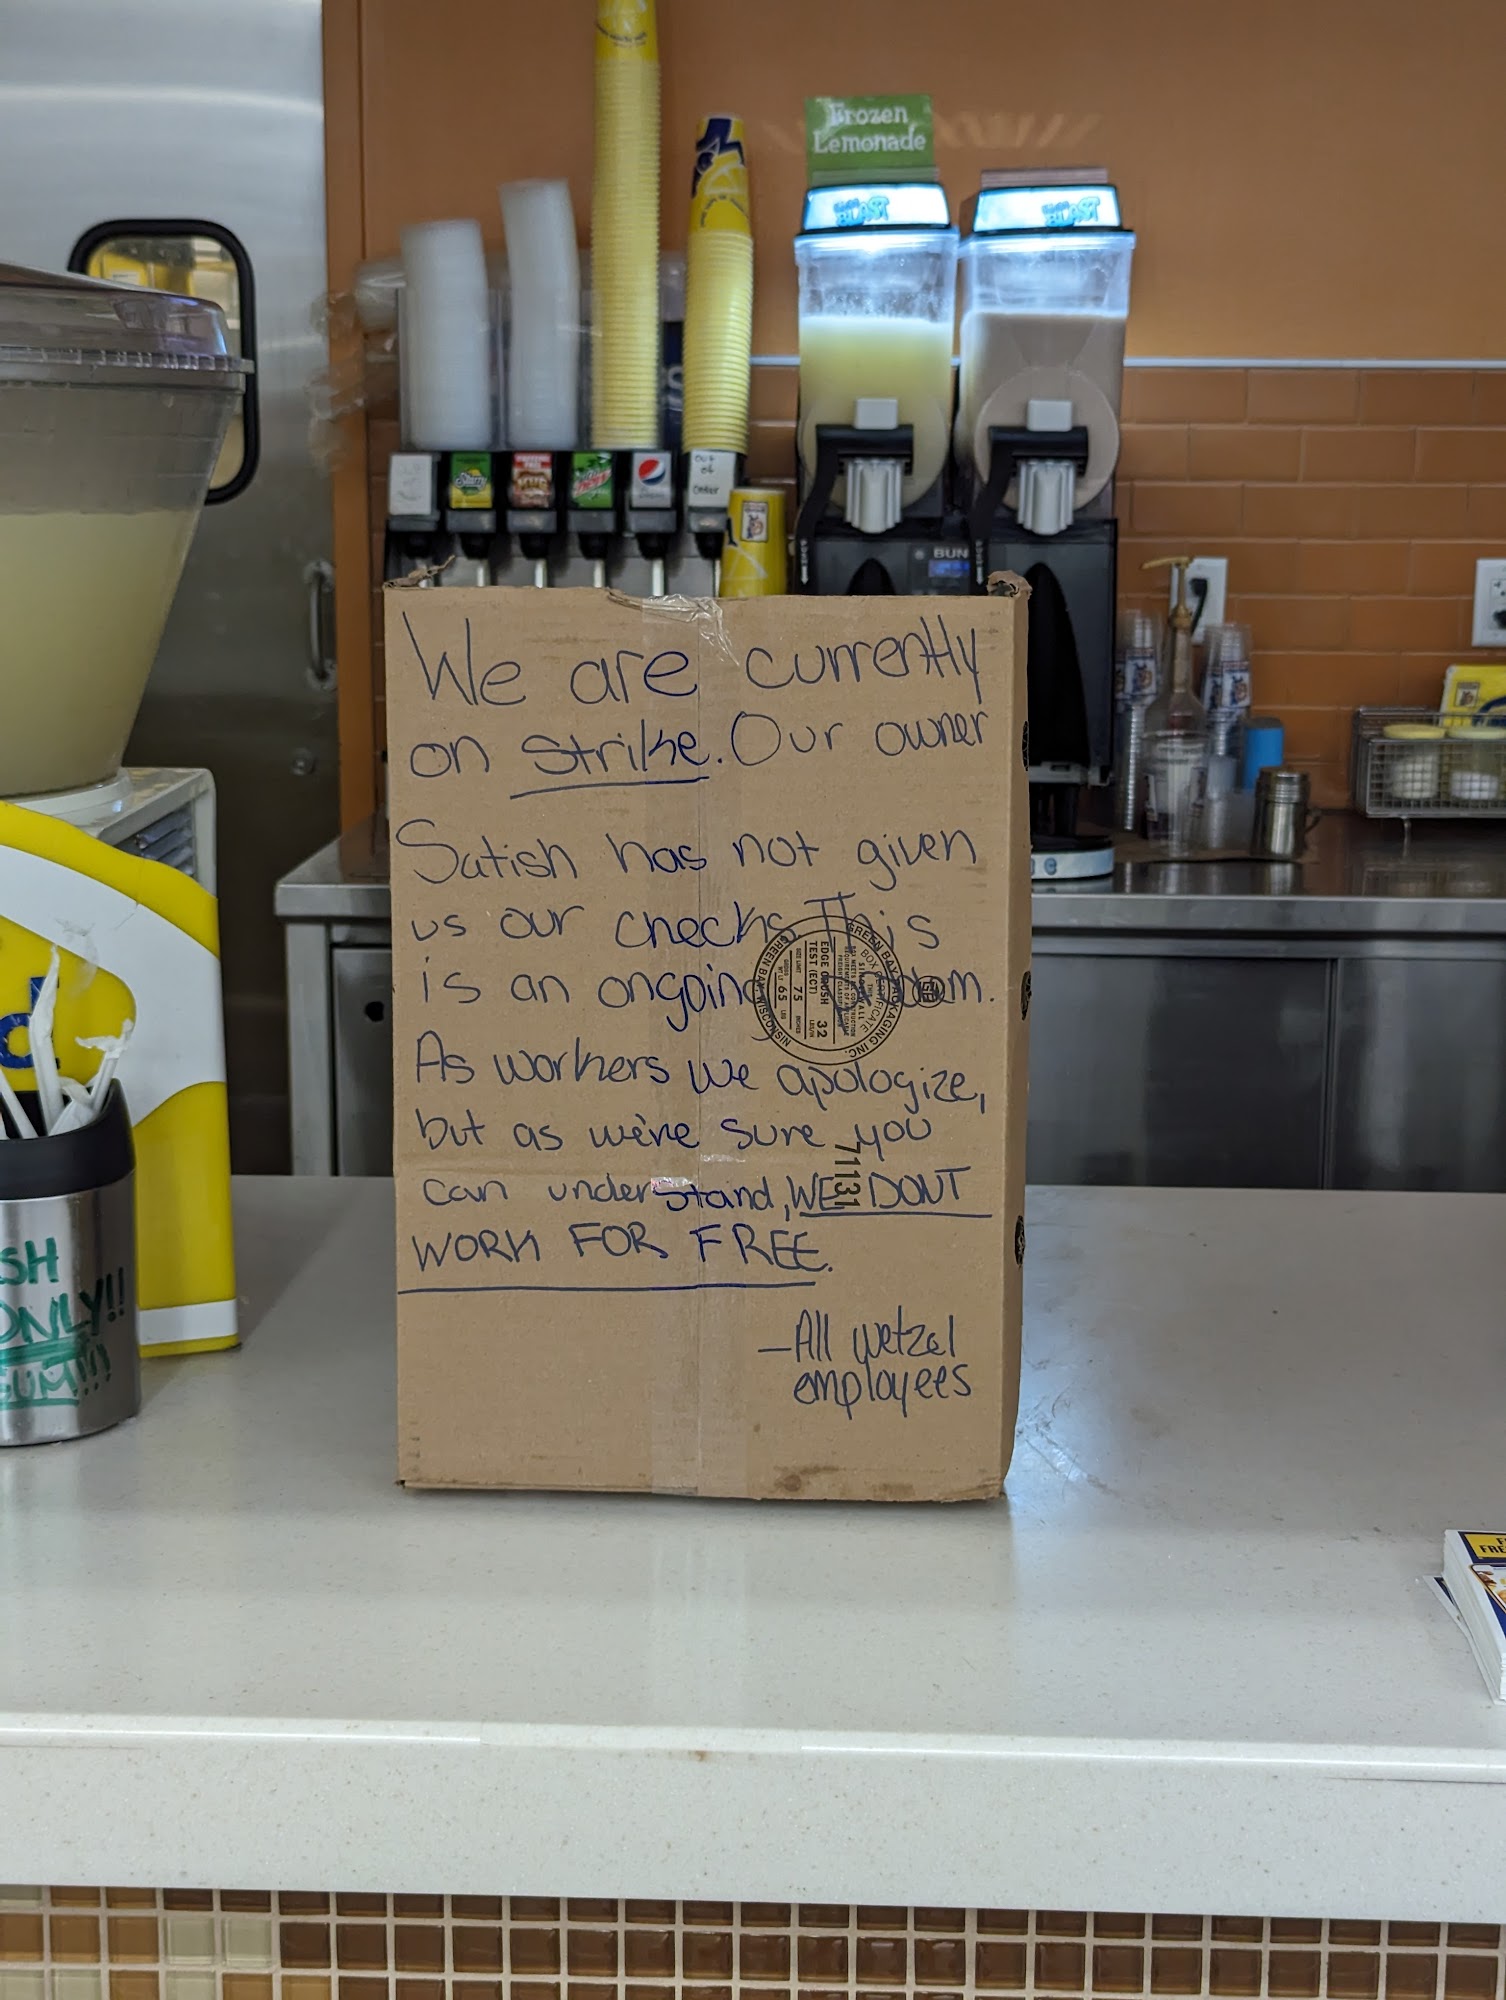 Frozen
Lemonade
BLAST
BLAST
Starry
pepsi
out
of
order
BUN
We are currently
on strike. Our owner
Satish has not given
us our checks. This
is an ongoing
As workers we apologize,
but as we're sure you
can understand, WE DONT
WORK FOR FREE.
—All wetzel
employees
GREEN BAY PACKAGING INC.
GREEN BAY, WISCONSIN
BOX CERTIFICATE
EDGE CRUSH
TEST (ECT)
32
SIZE LIMIT 75 INCHES
65
71131
SH
ONLY!!
FRE